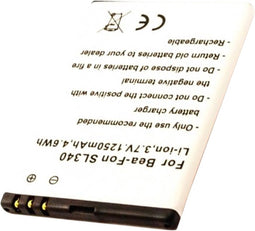 For Bea-Fon SL340
Li-ion,3.7V,1250mAh,4.6Wh
- Only use the recommend
battery charger
- Do not connect the positive
the negative terminal
- Do not dispose of batteries in fire
- Return old batteries to your dealer
- Rechargeable
CE